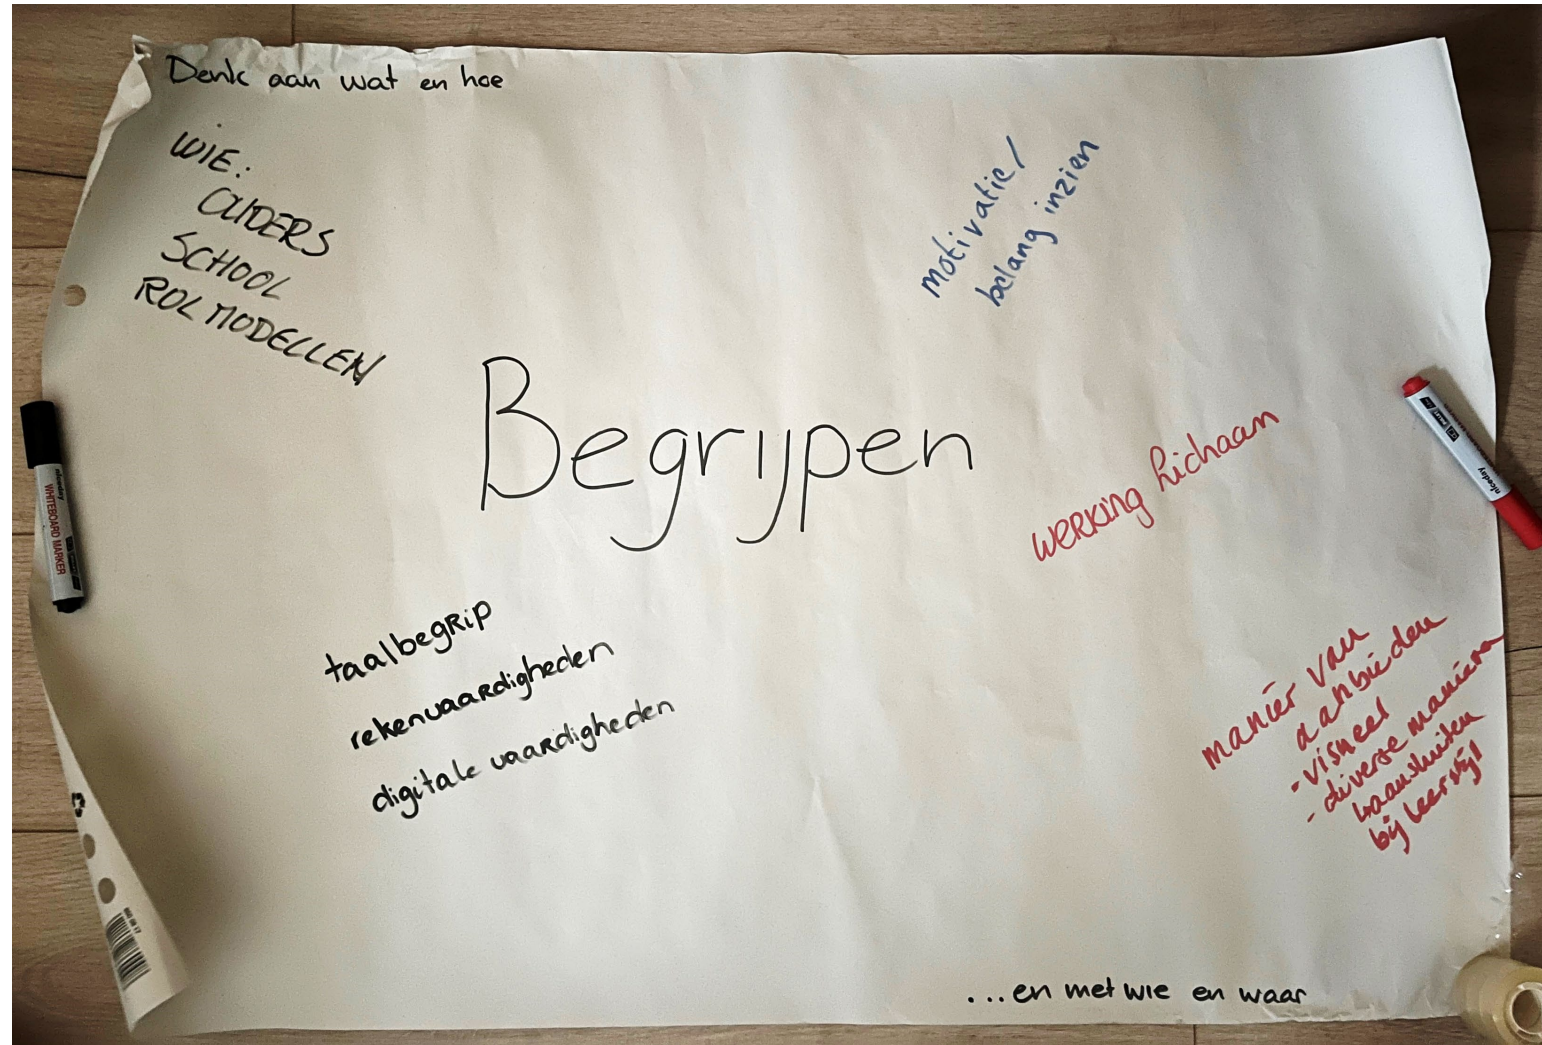 Denk aan wat en hoe
WIE:
OUDERS
SCHOOL
ROL MODELLEN
motivatie/
belang inzien
Begrijpen
werking lichaam
taalbegrip
rekenvaardigheden
digitale vaardigheden
manier van
aanbieden
- visueel
- diverse manieren
aansluiten
bij leerstijl
...en met wie en waar
niceday
WHITEBOARD MARKER
niceday